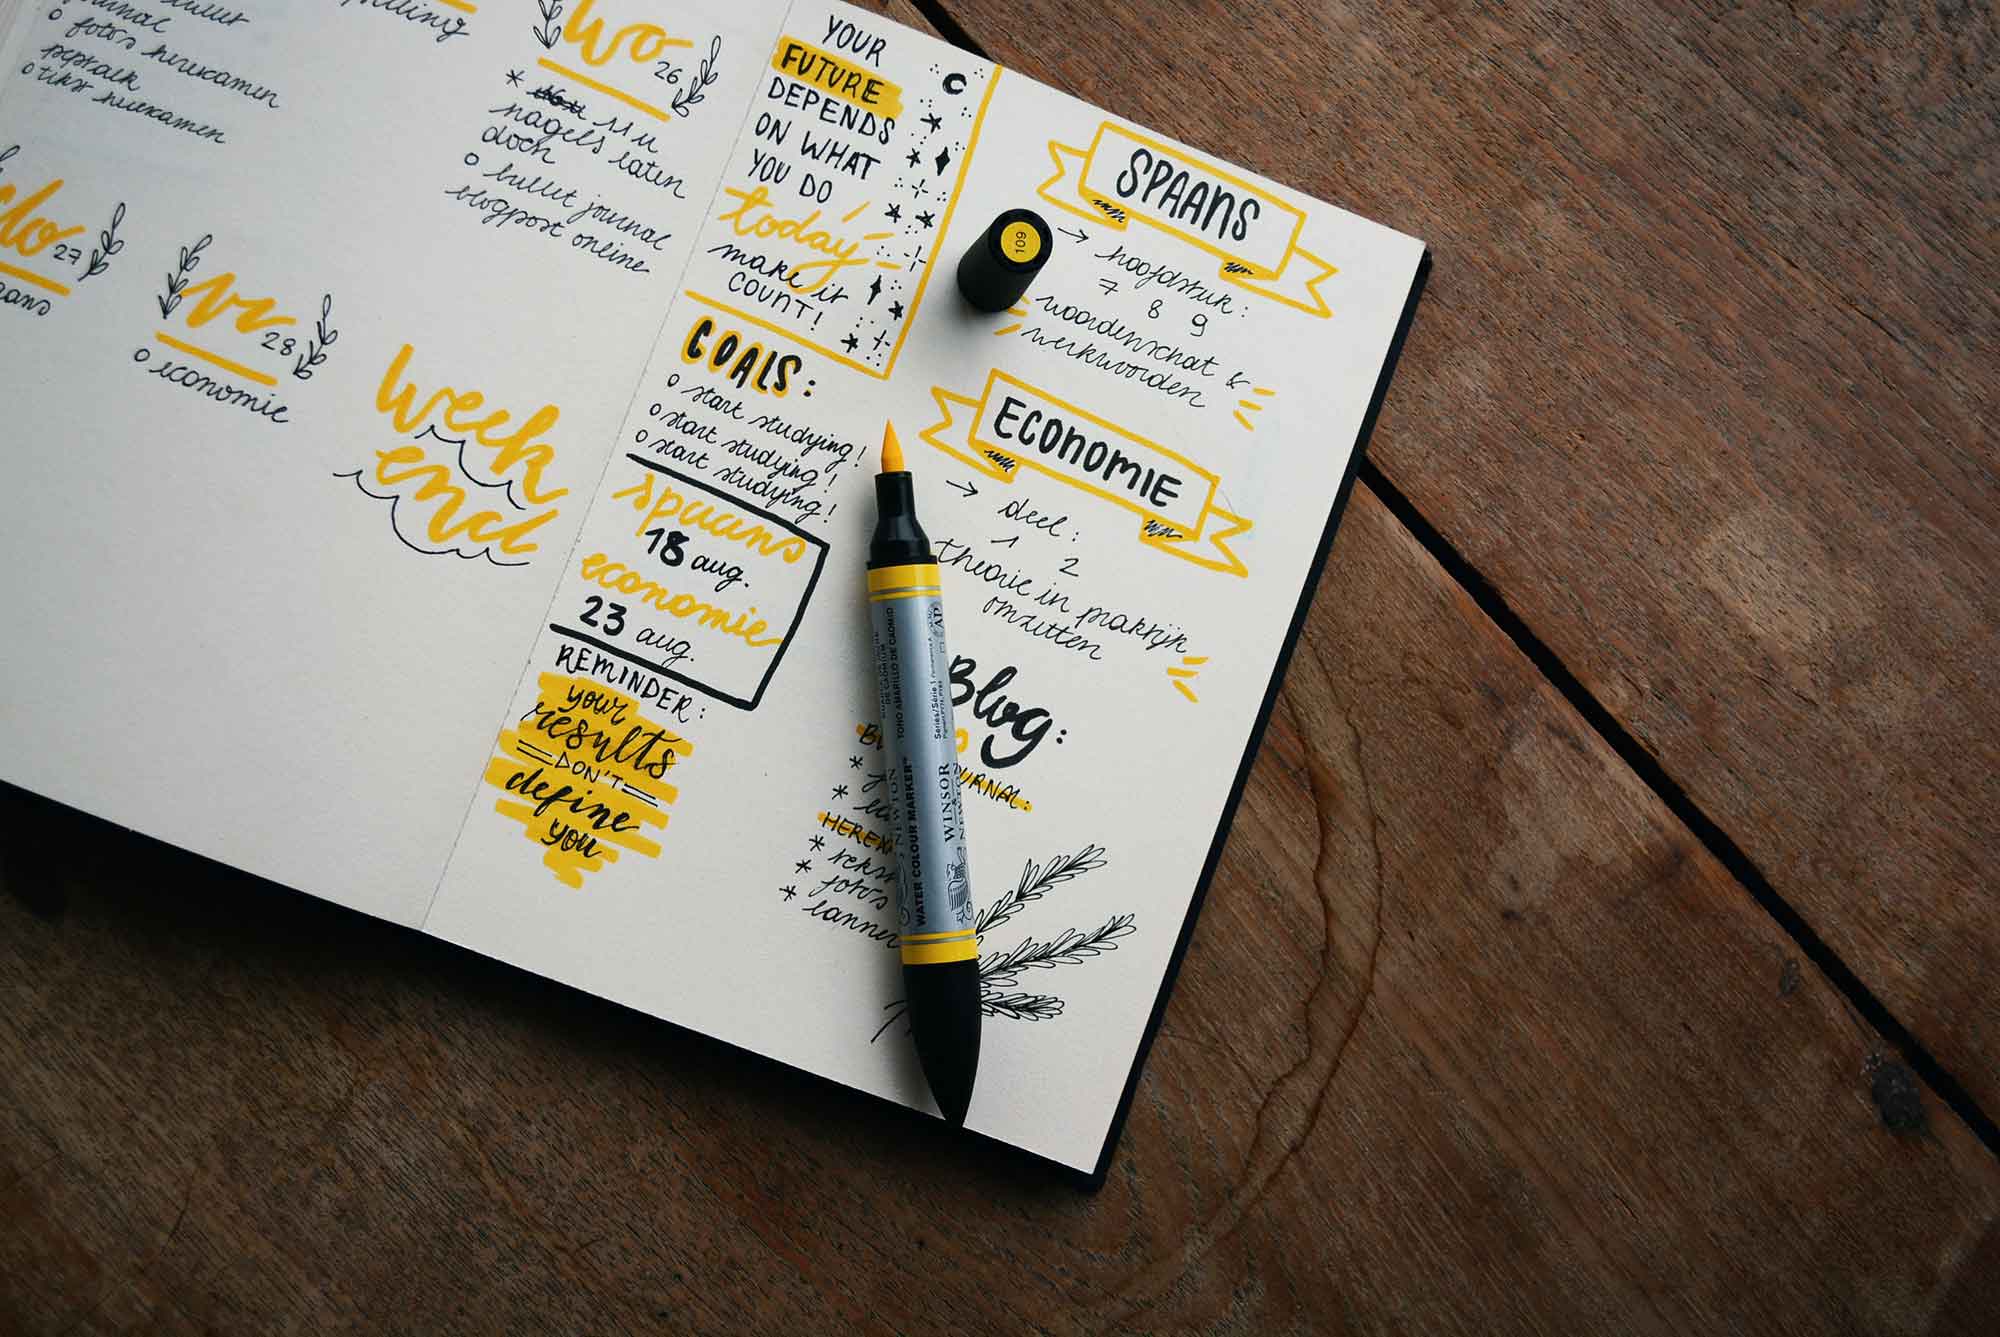 bullet
journal
o foto's herexamen
peptalk
o tekst herexamen
wo 26
* 11 u
nagels laten
doen
o bullet journal
blogpost online
do 27
vr 28
o economie
week
end
YOUR
FUTURE
DEPENDS
ON WHAT
YOU DO
today
make it
COUNT!
GOALS:
o start studying!
o start studying!
o start studying!
spaans
18 aug.
economie
23 aug.
REMINDER:
your
results
DON'T
define
you
SPAANS
→ hoofdstuk:
7 8 9
woordenschat &
werkwoorden
ECONOMIE
→ deel:
1 2
theorie in praktijk
omzetten
Blog:
JOURNAL:
*
*
HEREX
* tekst
* foto's
* lanner
109
TONO AMARILLO DE CADMIO
Series/Série 1
WATER COLOUR MARKER™
WINSOR
&
NEWTON